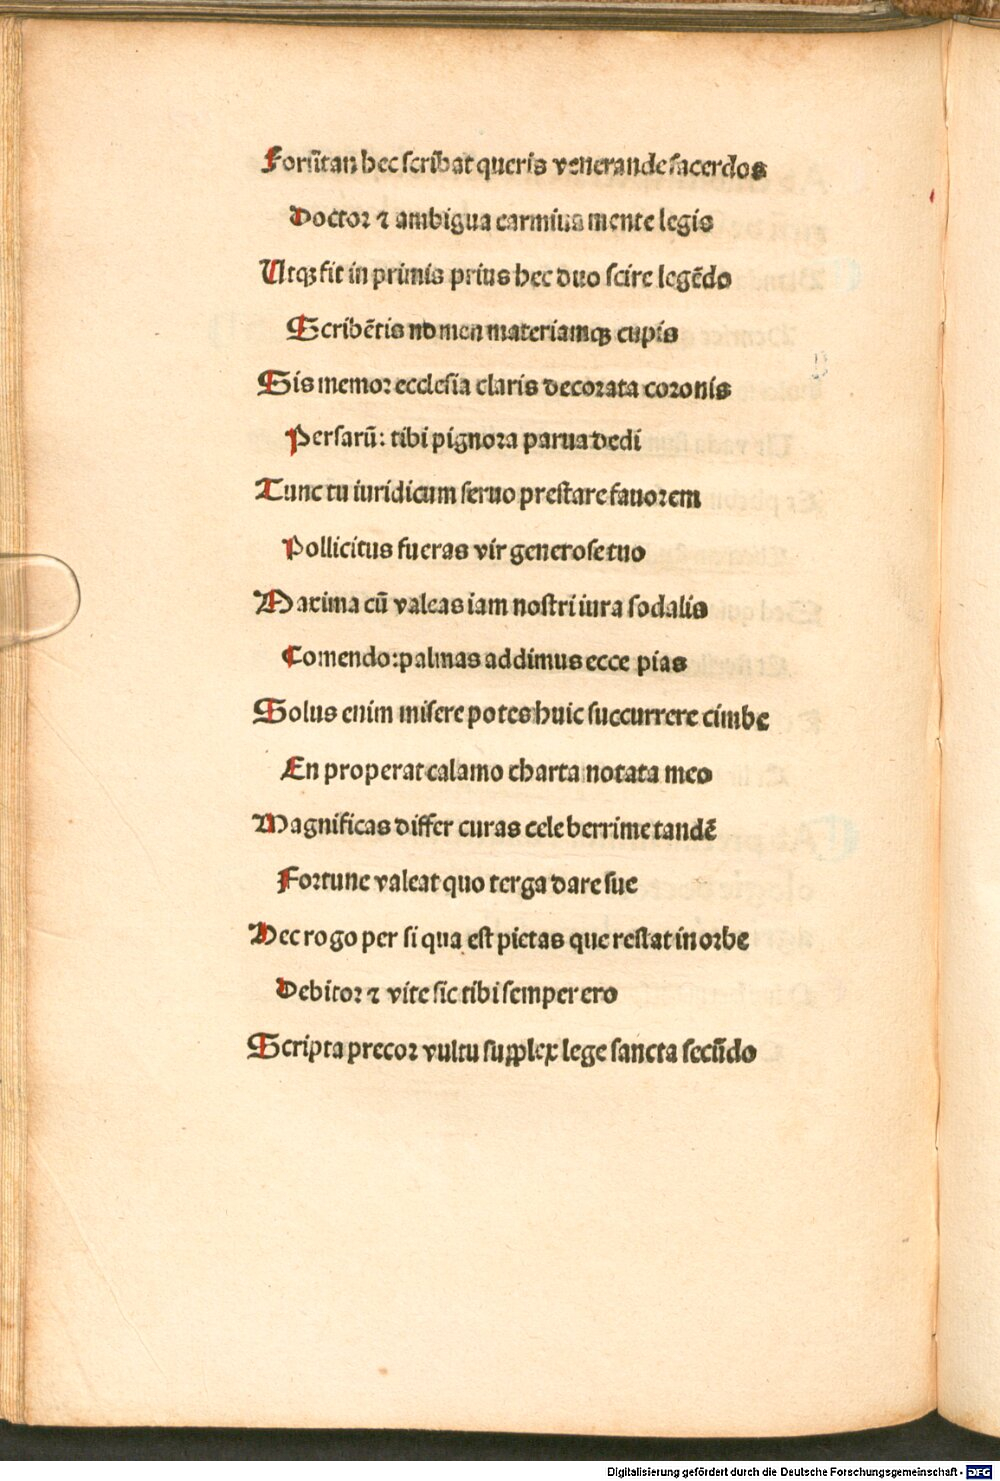 Forſitan hec ſcribat queris venerande ſacerdos
Doctoꝛ ⁊ ambigua carmina mente legis
Utqꝫ fit in primis prius hec duo ſcire legēdo
Scribētis nomen materiamqꝫ cupis
Sis memoꝛ eccleſia claris decoꝛata coꝛonis
Perſarū: tibi pignoꝛa parua dedi
Tunc tu iuridicum ſeruo preſtare fauoꝛem
Pollicitus fueras vir generoſe tuo
Maxima cū valeas iam noſtri iura ſodalis
Comendo: palmas addimus ecce pias
Solus enim miſere potes huic ſuccurrere cimbe
En properat calamo charta notata meo
Magnificas differ curas celeberrime tandē
Foꝛtune valeat quo terga dare ſue
Hec rogo per ſi qua eſt pietas que reſtat in oꝛbe
Debitoꝛ ⁊ vite ſic tibi ſemper ero
Scripta precoꝛ vultu ſupplex lege ſancta ſecūdo
Digitalisierung gefördert durch die Deutsche Forschungsgemeinschaft - DFG